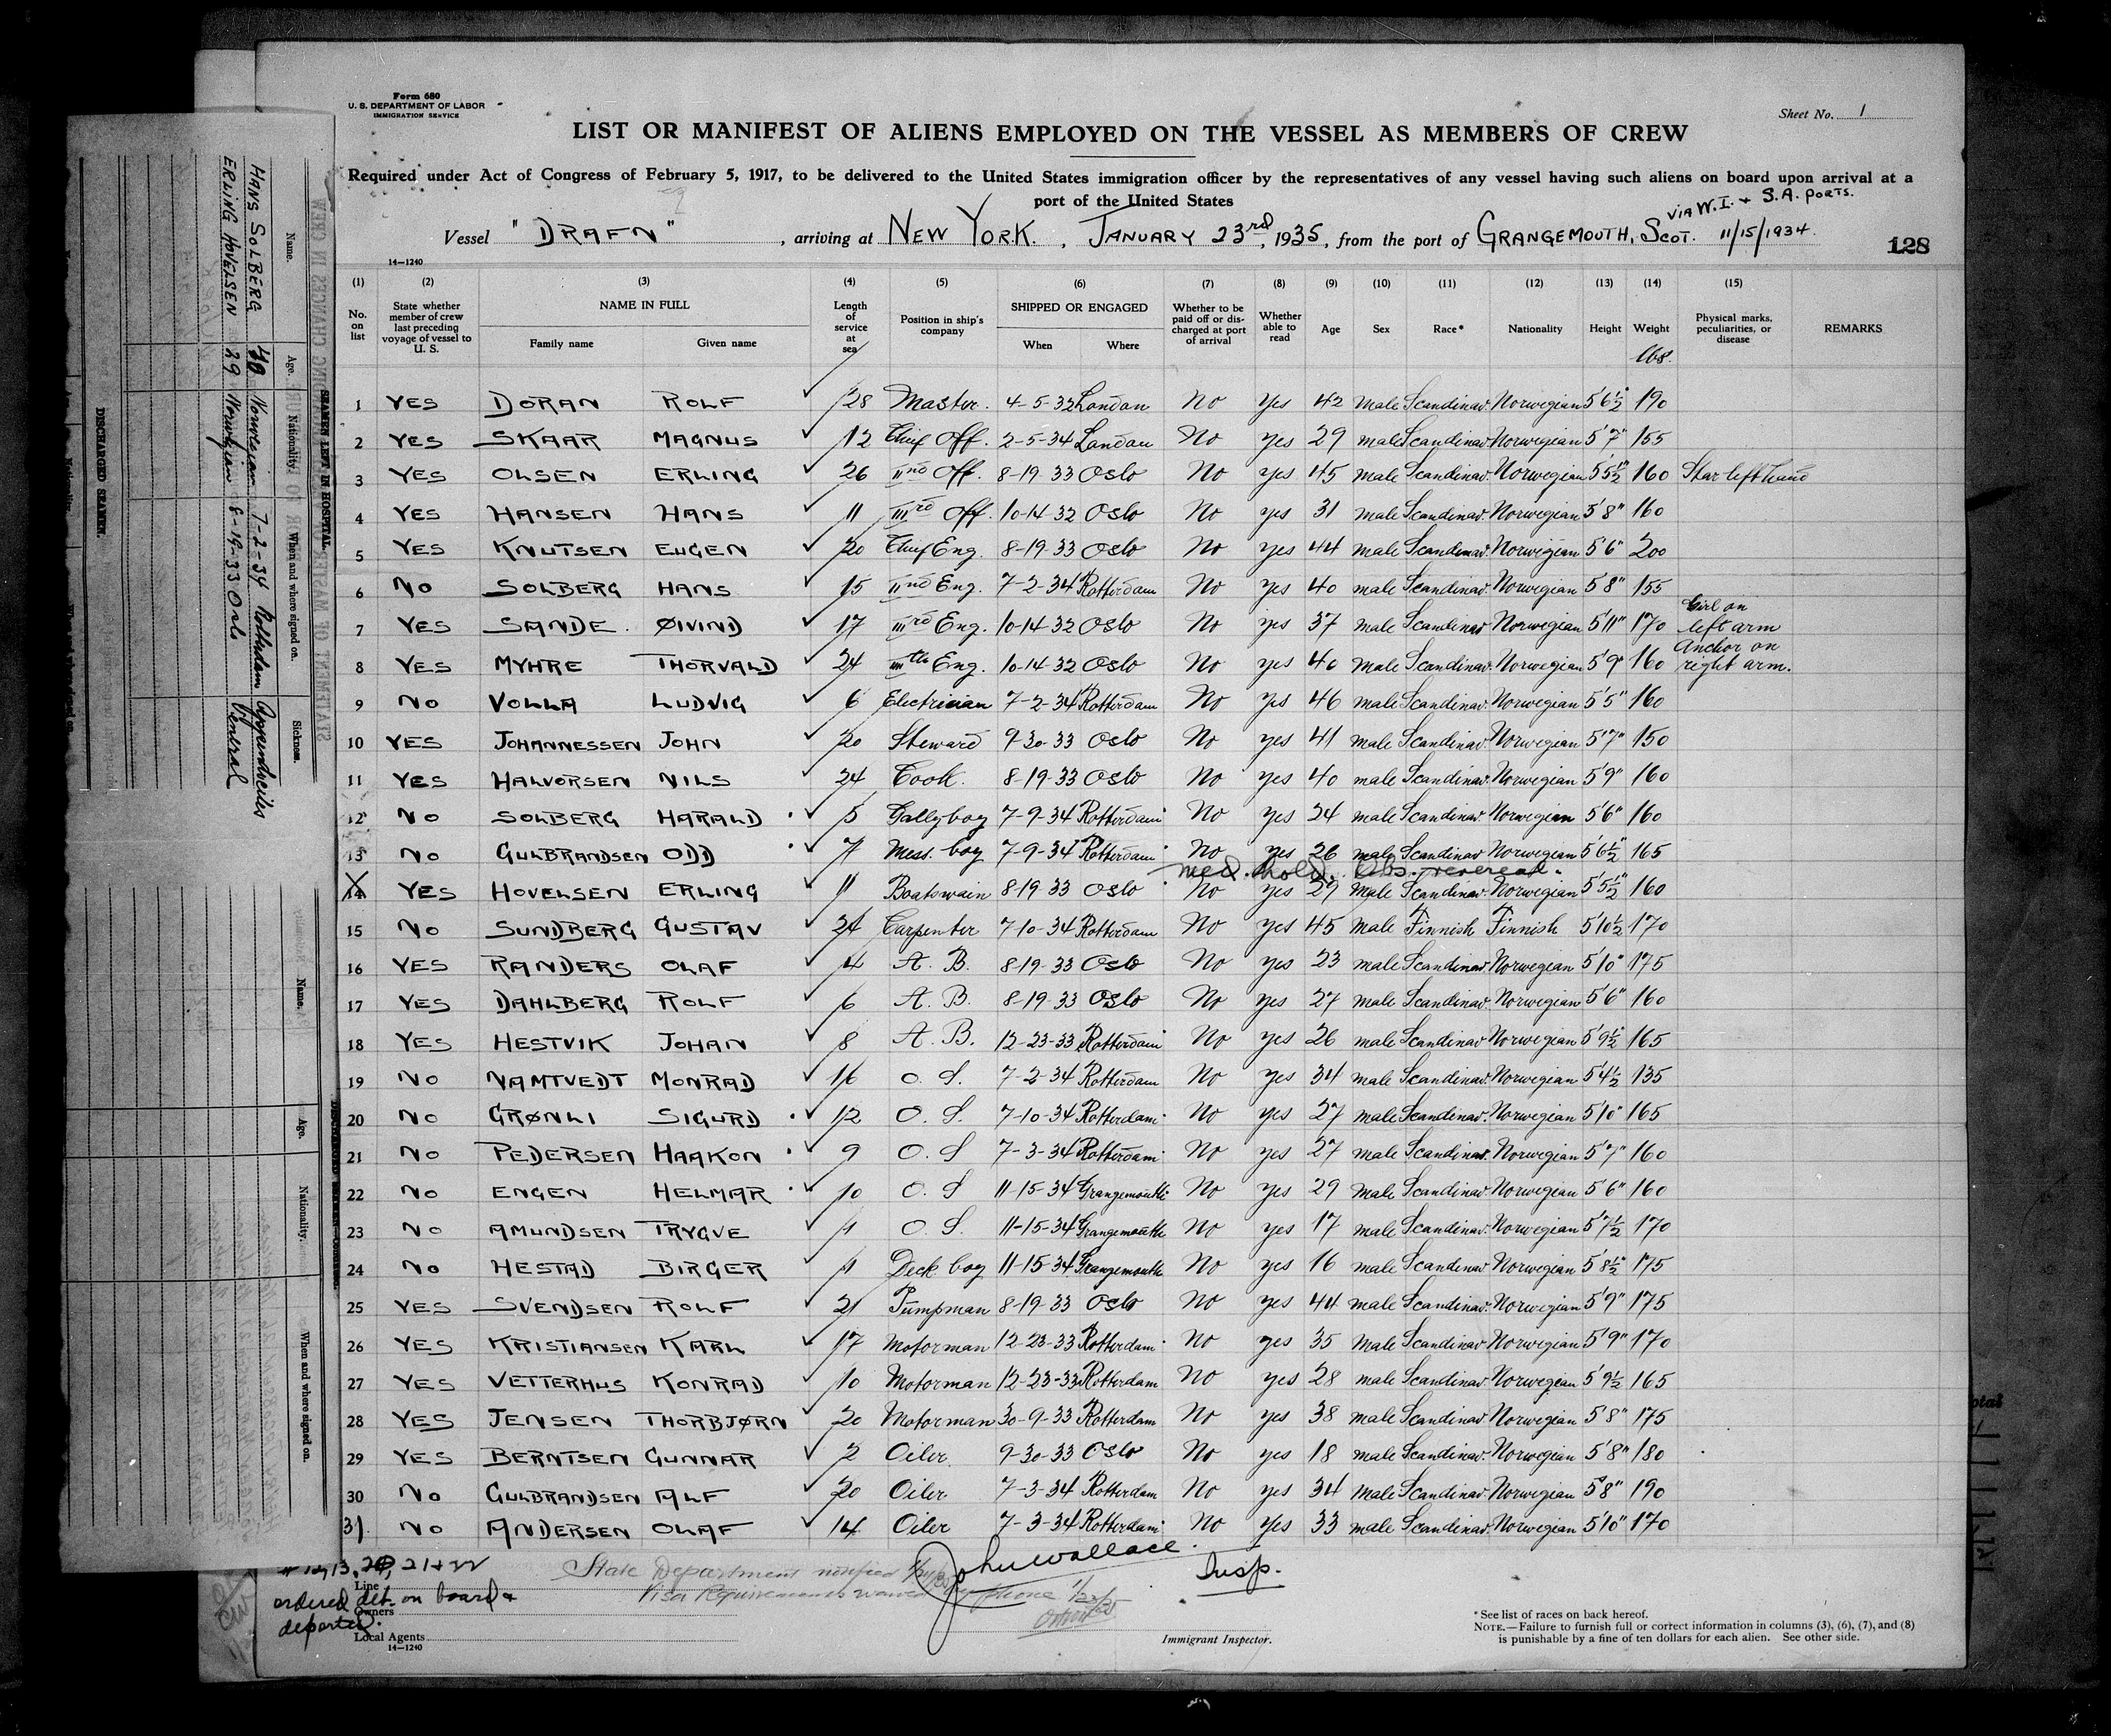 Form 680
U. S. DEPARTMENT OF LABOR
IMMIGRATION SERVICE
Sheet No. 1
LIST OR MANIFEST OF ALIENS EMPLOYED ON THE VESSEL AS MEMBERS OF CREW
Required under Act of Congress of February 5, 1917, to be delivered to the United States immigration officer by the representatives of any vessel having such aliens on board upon arrival at a
port of the United States
via W.I. + S.A. PORTS.
Vessel "DRAFN", arriving at NEW YORK., JANUARY 23rd, 1935, from the port of GRANGEMOUTH, SCOT. 11/15/1934.
128
14—1240
(1) (2) (3) (4) (5) (6) (7) (8) (9) (10) (11) (12) (13) (14) (15)
No. on list State whether member of crew last preceding voyage of vessel to U. S. NAME IN FULL Family name Given name Length of service at sea Position in ship's company SHIPPED OR ENGAGED When Where Whether to be paid off or discharged at port of arrival Whether able to read Age Sex Race* Nationality Height Weight Physical marks, peculiarities, or disease REMARKS
lbs.
1 YES DORAN ROLF 28 Master. 4-5-32 London No Yes 42 Male Scandinav. Norwegian 5'6½" 190
2 YES SKAAR MAGNUS 12 Chief Off. 2-5-34 London No yes 29 male Scandinav. Norwegian 5'7" 155
3 YES OLSEN ERLING 26 IInd Off. 8-19-33 Oslo No yes 45 male Scandinav. Norwegian 5'5½" 160 Skar left hand
4 YES HANSEN HANS 11 IIIrd Off. 10-14-32 Oslo No yes 31 male Scandinav. Norwegian 5'8" 160
5 YES KNUTSEN EUGEN 20 Chief Eng. 8-19-33 Oslo No yes 44 male Scandinav. Norwegian 5'6" 200
6 NO SOLBERG HANS 15 IInd Eng. 7-2-34 Rotterdam No yes 40 male Scandinav. Norwegian 5'8" 155
7 YES SANDE. ØIVIND 17 IIIrd Eng. 10-14-32 Oslo No yes 37 male Scandinav Norwegian 5'11" 170 Girl on left arm
8 YES MYHRE THORVALD 24 IIIIth Eng. 10-14-32 Oslo No yes 40 male Scandinav. Norwegian 5'9" 160 Anchor on right arm.
9 NO VOLLA LUDVIG 6 Electrician 7-2-34 Rotterdam No yes 46 male Scandinav. Norwegian 5'5" 160
10 YES JOHANNESSEN JOHN 20 Steward 9-30-33 Oslo No yes 41 male Scandinav. Norwegian 5'7" 150
11 YES HALVORSEN NILS 24 Cook. 8-19-33 Oslo No yes 40 male Scandinav. Norwegian 5'9" 160
12 NO SOLBERG HARALD 5 Gallyboy 7-9-34 Rotterdam No yes 24 male Scandinav Norwegian 5'6" 160
13 NO GULBRANDSEN ODD 7 Mess. boy 7-9-34 Rotterdam No yes 26 male Scandinav Norwegian 5'6½" 165
med. hold.
14 YES HOVELSEN ERLING 11 Boatswain 8-19-33 Oslo No yes 29 Male Scandinav. Norwegian 5'5½" 160
15 NO SUNDBERG GUSTAV 24 Carpenter 7-10-34 Rotterdam No yes 45 male Finnish Finnish 5'10½ 170
16 YES RANDERS OLAF 4 A. B. 8-19-33 Oslo No yes 23 male Scandinav. Norwegian 5'10" 175
17 YES DAHLBERG ROLF 6 A. B. 8-19-33 Oslo No yes 27 male Scandinav. Norwegian 5'6" 160
18 YES HESTVIK JOHAN 8 A. B. 12-23-33 Rotterdam No yes 26 male Scandinav Norwegian 5'9½" 165
19 NO NAMTVEDT MONRAD 16 O. S. 7-2-34 Rotterdam No yes 34 male Scandinav. Norwegian 5'4½ 135
20 NO GRØNLI SIGURD 12 O. S. 7-10-34 Rotterdam No yes 27 male Scandinav. Norwegian 5'10" 165
21 NO PEDERSEN HAAKON 9 O. S 7-3-34 Rotterdam No yes 27 male Scandinav. Norwegian 5'7" 160
22 NO ENGEN HELMAR 10 O. S 11-15-34 Grangemouth No yes 29 male Scandinav. Norwegian 5'6" 160
23 NO AMUNDSEN TRYGVE 1 O. S. 11-15-34 Grangemouth No yes 17 male Scandinav. Norwegian 5'7½ 170
24 NO HESTAD BIRGER 1 Deck boy 11-15-34 Grangemouth No yes 16 male Scandinav Norwegian 5'8½" 175
25 YES SVENDSEN ROLF 21 Pumpman 8-19-33 Oslo No yes 44 male Scandinav. Norwegian 5'9" 175
26 YES KRISTIANSEN KARL 17 Motorman 12-23-33 Rotterdam No yes 35 Male Scandinav Norwegian 5'9" 170
27 YES VETTERHUS KONRAD 10 Motorman 12-23-33 Rotterdam No yes 28 male Scandinav. Norwegian 5'9½ 165
28 YES JENSEN THORBJØRN 20 Motorman 30-9-33 Rotterdam No yes 38 male Scandinav Norwegian 5'8" 175
29 YES BERNTSEN GUNNAR 2 Oiler 9-30-33 Oslo No yes 18 male Scandinav. Norwegian 5'8" 180
30 NO GULBRANDSEN ALF 20 Oiler 7-3-34 Rotterdam No yes 34 male Scandinav. Norwegian 5'8" 190
31. NO ANDERSEN OLAF 14 Oiler 7-3-34 Rotterdam No yes 33 male Scandinav. Norwegian 5'10" 170
# 12, 13, 20, 21 + 22
ordered det. on board &
deported.
Line
Owners
Local Agents
14—1240
State Department notified
Visa Requirements waived by phone
John Wallace. Insp.
Immigrant Inspector.
* See list of races on back hereof.
NOTE.—Failure to furnish full or correct information in columns (3), (6), (7), and (8)
is punishable by a fine of ten dollars for each alien. See other side.
SEAMEN LEFT IN HOSPITAL
Name. Age. Nationality. When and where signed on. Sickness.
HANS SOLBERG 40 Norwegian 7-2-34 Rotterdam
ERLING HOVELSEN 29 Norwegian 8-19-33 Oslo
DISCHARGED SEAMEN.
Name. Age. Nationality. When and where signed on.